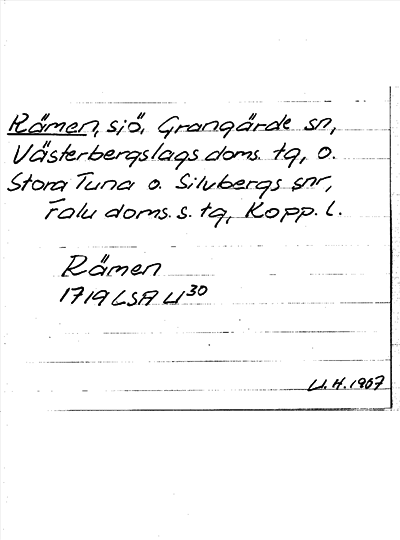 Rämen, sjö, Grangärde sn,
Västerbergslags doms. tg, o.
Stora Tuna o. Silvbergs snr,
Falu doms. s. tg, Kopp. l.
Rämen
1719 LSA U30
U.H. 1967